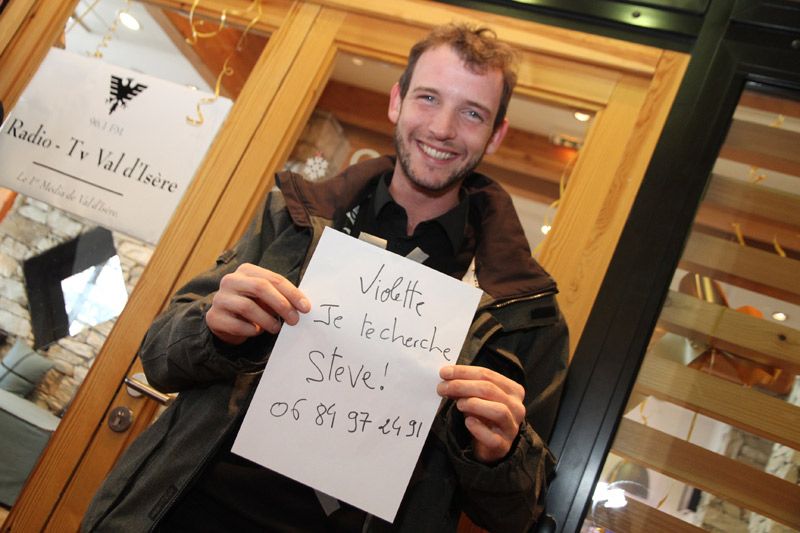 96.1 FM
Radio - Tv Val d'Isère
Le 1er Media de Val d'Isère.
Violette
Je te cherche
Steve!
06 84 97 24 91